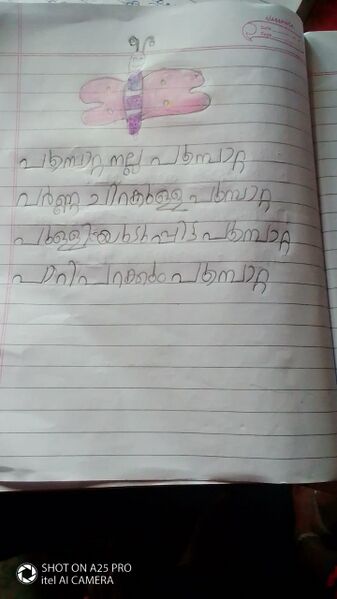 പൂമ്പാറ്റ നല്ല പൂമ്പാറ്റ
വർണ്ണ ചിറകുള്ള പൂമ്പാറ്റ
പുള്ളിയുടുപ്പിട്ട പൂമ്പാറ്റ
പാറിപറക്കും പൂമ്പാറ്റ
SHOT ON A25 PRO
itel AI CAMERA